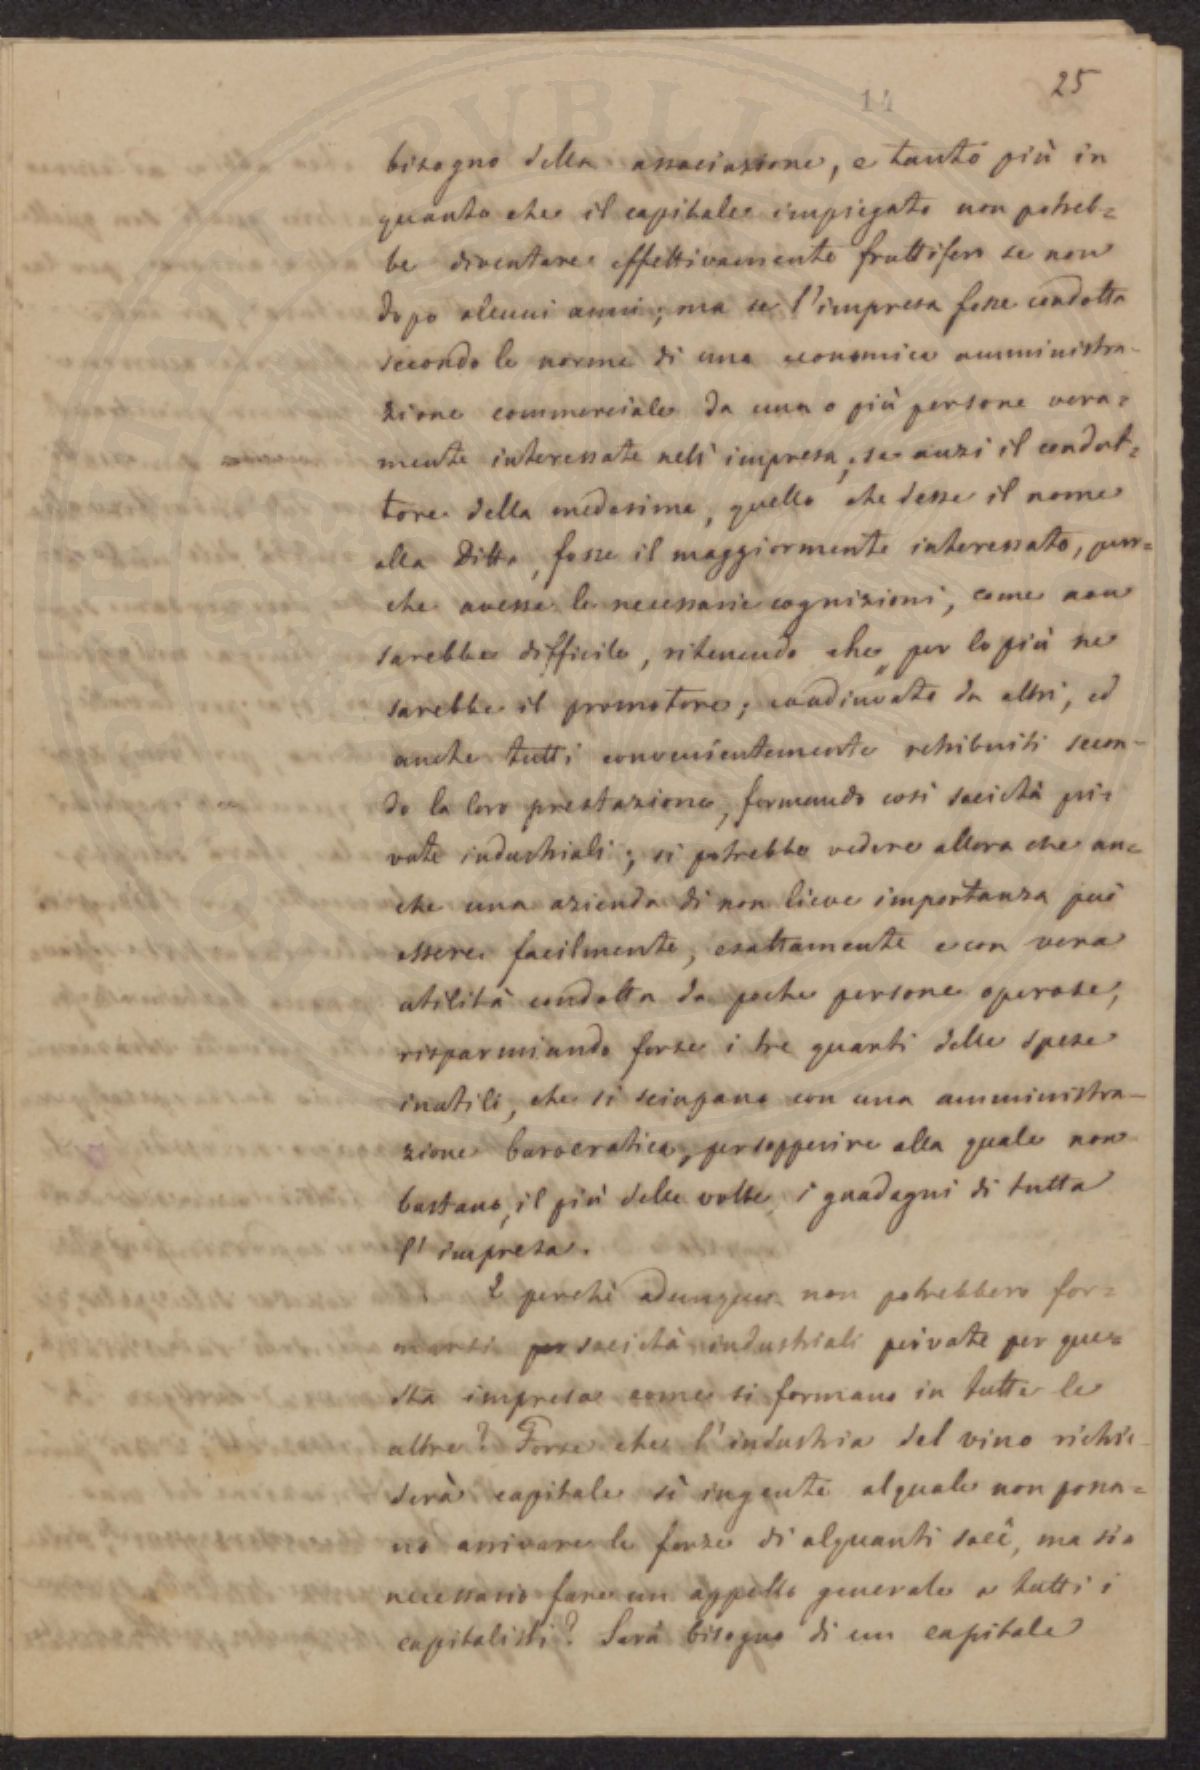 14
25
bisogno della associazione, e tanto più in
quanto che il capitale impiegato non potreb=
be diventare effettivamente fruttifero se non
dopo alcuni anni; ma se l'impresa fosse condotta
secondo le norme di una economica amministra-
zione commerciale da una o più persone vera=
mente interessate nell'impresa; se anzi il condut=
tore della medesima, quello che desse il nome
alla Ditta, fosse il maggiormente interessato, pur=
che avesse le necessarie cognizioni, come non
sarebbe difficile, ritenendo che per lo più ne
sarebbe il promotore; coadiuvato da altri, ed
anche tutti convenientemente retribuiti secon-
do la loro prestazione, formando così società pri=
vate industriali; si potrebbe vedere allora che an=
che una azienda di non lieve importanza può
essere facilmente, esattamente e con vera
utilità condotta da poche persone operose,
risparmiando forse i tre quarti delle spese
inutili, che si sciupano con una amministra-
zione burocratica, per sopperire alla quale non
bastano, il più delle volte, i guadagni di tutta
l'impresa.
E perchè adunque non potrebbero for=
marsi per società industriali private per que=
sta impresa come si formano in tutte le
altre? Forse che l'industria del vino richie-
derà capitale sì ingente al quale non possa=
no arrivare le forze di alquanti socî, ma sia
necessario fare un appello generale a tutti i
capitalisti? Sarà bisogno di un capitale
PVBLIC